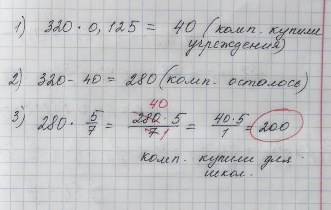 1) 320 · 0,125 = 40 (комп. купили
учреждения)
2) 320 - 40 = 280 (комп. осталось)
40
3) 280 · 5/7 = 280 · 5 / 7 1 = 40 · 5 / 1 = 200
комп. купили для
школ.